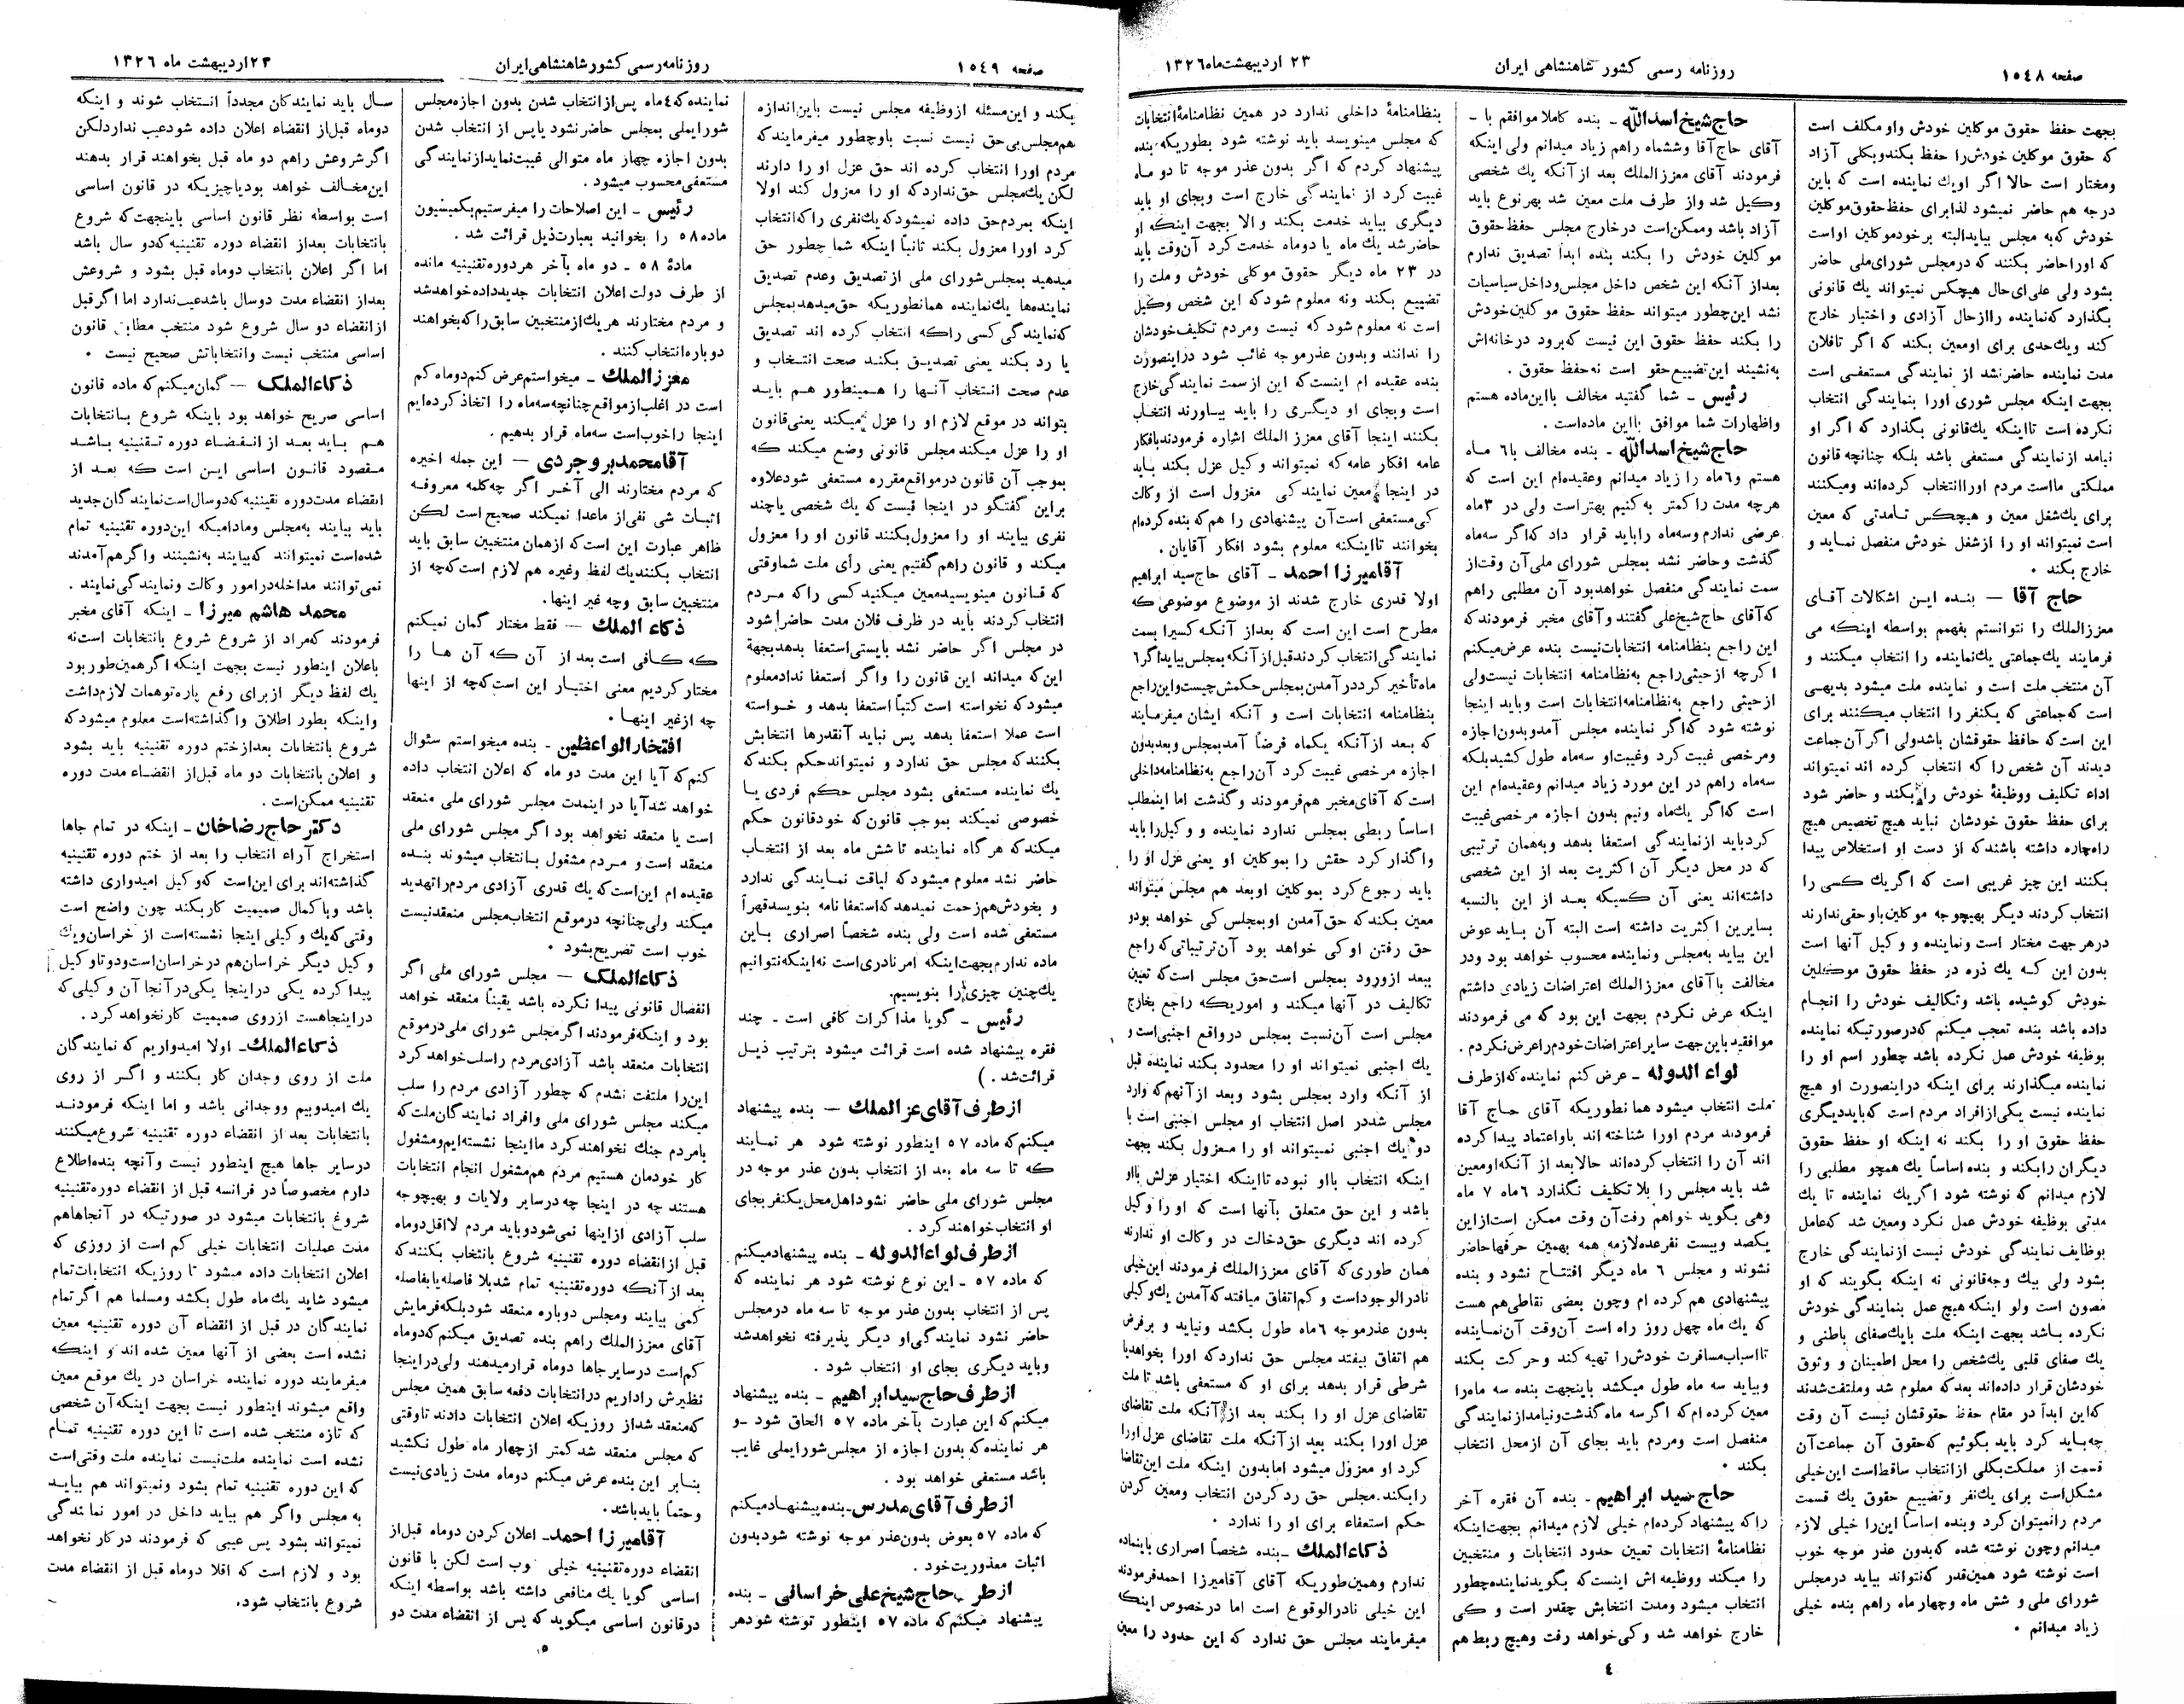 صفحه ۱۵٤۸
روزنامه رسمی کشور شاهنشاهی ایران
۲۳ اردیبهشت‌ماه ۱۳۲۶
بجهت حفظ حقوق موکلین خودش واو مکلف است
که حقوق موکلین خودش‌را حفظ بکندوبکلی آزاد
ومختار است حالا اگر اویك نماینده است که باین
درجه هم حاضر نمیشود لذابرای حفظ‌حقوق‌موکلین
خودش که‌به مجلس بیایدالبته برخودموکلین اواست
که اوراحاضر بکنند که درمجلس شورای‌ملی حاضر
بشود ولی علی‌ای‌حال هیچکس نمیتواند یك قانونی
بگذارد که‌نماینده راازحال آزادی و اختیار خارج
کند ویك‌حدی برای اومعین بکند که اگر تافلان
مدت نماینده حاضرنشد از نمایندگی مستعفی است
بجهت اینکه مجلس شوری اورا بنمایندگی انتخاب
نکرده است تااینکه یك‌قانونی بگذارد که اگر او
نیامد ازنمایندگی مستعفی باشد بلکه چنانچه قانون
مملکتی مااست مردم اوراانتخاب کرده‌اند ومیکنند
برای یك‌شغل معین و هیچکس تامدتی که معین
است نمیتواند او را ازشغل خودش منفصل نماید و
خارج بکند .
حاج آقا — بنده این اشکالات آقای
معززالملك را نتوانستم بفهمم بواسطه اینکه می
فرمایند یك‌جماعتی یك‌نماینده را انتخاب میکنند و
آن منتخب ملت است و نماینده ملت میشود بدیهی
است که‌جماعتی که یکنفر را انتخاب میکنند برای
این است‌که حافظ حقوقشان باشدولی اگر آن‌جماعت
دیدند آن شخص را که انتخاب کرده اند نمیتواند
اداء تکلیف ووظیفهٔ خودش را بکند و حاضر شود
برای حفظ حقوق خودشان نباید هیچ تخصیص هیچ
راه‌چاره داشته باشندکه از دست او استخلاص پیدا
بکنند این چیز غریبی است که اگریك کسی را
انتخاب کردند دیگر بهیچوجه موکلین‌باوحقی‌ندارند
درهرجهت مختار است ونماینده و وکیل آنها است
بدون این که یك ذره در حفظ حقوق موکلین
خودش کوشیده باشد وتکالیف خودش را انجام
داده باشد بنده تعجب میکنم که‌درصورتیکه نماینده
بوظیفه خودش عمل نکرده باشد چطور اسم او را
نماینده میگذارند برای اینکه دراینصورت او هیچ
نماینده نیست یکی‌ازافراد مردم است که‌بایددیگری
حفظ حقوق او را بکند نه اینکه او حفظ حقوق
دیگران رابکند و بنده اساساً یك همچو مطلبی را
لازم میدانم که نوشته شود اگریك نماینده تا یك
مدتی بوظیفه خودش عمل نکرد ومعین شد که‌عامل
بوظایف نمایندگی خودش نیست ازنمایندگی خارج
بشود ولی بیك وجه‌قانونی نه اینکه بگویند که او
مصون است ولو اینکه هیچ عمل بنمایندگی خودش
نکرده باشد بجهت اینکه ملت بایك‌صفای باطنی و
یك صفای قلبی یك‌شخص را محل اطمینان و وثوق
خودشان قرار داده‌اند بعدکه معلوم شد وملتفت‌شدند
که‌این ابدأ در مقام حفظ حقوقشان نیست آن وقت
چه‌باید کرد باید بگوئیم که‌حقوق آن جماعت‌آن
قسمت از مملکت‌بکلی ازانتخاب ساقط‌است این‌خیلی
مشکل‌است برای یك‌نفر وتضییع حقوق یك قسمت
مردم رانمیتوان کرد وبنده اساساً این‌را خیلی لازم
میدانم وچون نوشته شده که‌بدون عذر موجه خوب
است نوشته شود همین‌قدر که‌نتواند بیاید درمجلس
شورای ملی و شش ماه وچهار ماه راهم بنده خیلی
زیاد میدانم .
حاج‌شیخ‌اسدالله – بنده کاملا موافقم با –
آقای حاج‌آقا وششماه راهم زیاد میدانم ولی اینکه
فرمودند آقای معززالملك بعد ازآنکه یك شخصی
وکیل شد واز طرف ملت معین شد بهرنوع باید
آزاد باشد وممکن‌است درخارج مجلس حفظ‌حقوق
موکلین خودش را بکند بنده ابداً تصدیق ندارم
بعداز آنکه این شخص داخل مجلس‌وداخل‌سیاسیات
نشد این‌چطور میتواند حفظ حقوق موکلین‌خودش
را بکند حفظ حقوق این نیست که‌برود درخانه‌اش
به‌نشیند این‌تضییع‌حقو است نه‌حفظ حقوق .
رئیس – شما گفتید مخالف بااین‌ماده هستم
واظهارات شما موافق بااین ماده‌است .
حاج‌شیخ‌اسدالله – بنده مخالف با٦ ماه
هستم و٦ماه را زیاد میدانم وعقیده‌ام این است که
هرچه مدت راکمتر به‌کنیم بهتراست ولی در ۳ماه
عرضی ندارم وسه‌ماه راباید قرار داد که‌اگر سه‌ماه
گذشت وحاضر نشد بمجلس شورای ملی‌آن وقت‌از
سمت نمایندگی منفصل خواهدبود آن مطلبی راهم
که‌آقای حاج‌شیخ‌علی گفتند وآقای مخبر فرمودندکه
این راجع بنظامنامه انتخابات‌نیست بنده عرض‌میکنم
اگرچه ازحیثی‌راجع به‌نظامنامه انتخابات نیست‌ولی
ازحیثی راجع به‌نظامنامه‌انتخابات است وباید اینجا
نوشته شود که‌اگر نماینده مجلس آمدوبدون‌اجازه
ومرخصی غیبت کرد وغیبت‌او سه‌ماه طول کشیدبلکه
سه‌ماه راهم در این مورد زیاد میدانم وعقیده‌ام این
است که‌اگر یك‌ماه ونیم بدون اجازه مرخصی‌غیبت
کردباید ازنمایندگی استعفا بدهد وبه‌همان ترتیبی
که در محل دیگر آن اکثریت بعد از این شخصی
داشته‌اند یعنی آن کسیکه بعد از این بالنسبه
بسایرین اکثریت داشته است البته آن باید عوض
این بیاید به‌مجلس ونماینده محسوب خواهد بود ودر
مخالفت باآقای معززالملك اعتراضات زیادی داشتم
اینکه عرض نکردم بجهت این بود که می فرمودند
موافقیدباین‌جهت سایراعتراضات‌خودم‌راعرض‌نکردم .
لواءالدوله – عرض کنم نماینده که‌ازطرف
ملت انتخاب میشود همانطوریکه آقای حاج آقا
فرمودند مردم اورا شناخته اند باواعتماد پیداکرده
اند آن را انتخاب کرده‌اند حالابعد از آنکه‌اومعین
شد باید مجلس را بلاتکلیف نگذارد ٦ماه ۷ ماه
وهی بگوید خواهم رفت‌آن وقت ممکن است‌ازاین
یکصد وبیست نفرعده‌لازمه همه بهمین حرفهاحاضر
نشوند و مجلس ٦ ماه دیگر افتتاح نشود و بنده
پیشنهادی هم‌کرده ام وچون بعضی نقاطی‌هم هست
که یك ماه چهل روز راه است آن‌وقت آن‌نماینده
تااسباب‌مسافرت خودش‌را تهیه کند وحرکت بکند
وبیاید سه ماه طول میکشد باینجهت بنده سه ماه‌را
معین کرده ام‌که اگرسه ماه گذشت‌ونیامدازنمایندگی
منفصل است ومردم باید بجای آن ازمحل انتخاب
بکند .
حاج سید ابراهیم – بنده آن فقره آخر
راکه پیشنهاد کرده‌ام خیلی لازم میدانم بجهت‌اینکه
نظامنامهٔ انتخابات تعیین حدود انتخابات و منتخبین
را میکند ووظیفه‌اش اینست‌که بگویدنماینده‌چطور
انتخاب میشود ومدت انتخابش چقدر است و کی
خارج خواهد شد وکی‌خواهد رفت وهیچ ربط هم
بنظامنامهٔ داخلی ندارد در همین نظامنامهٔ‌انتخابات
که مجلس مینویسد باید نوشته شود بطوریکه‌بنده
پیشنهاد کردم که اگر بدون عذر موجه تا دو ماه
غیبت کرد از نمایندگی خارج است وبجای او باید
دیگری بیاید خدمت بکند والا بجهت اینکه او
حاضرشد یك ماه یا دوماه خدمت‌کرد آن‌وقت باید
در ۲۳ ماه دیگر حقوق موکلی خودش وملت را
تضییع بکند ونه معلوم شودکه این شخص وکیل
است نه معلوم شود که نیست ومردم تکلیف‌خودشان
را ندانند وبدون عذرموجه غائب شود دراینصورت
بنده عقیده ام اینست‌که این ازسمت نمایندگی‌خارج
است وبجای او دیگری را باید بیاورند انتخاب
بکنند اینجا آقای معزز الملك اشاره فرمودندبافکار
عامه افکار عامه‌که نمیتواند وکیل عزل بکند باید
در اینجا معین نمایندگی مغزول است از وکالت
کی‌مستعفی است‌آن پیشنهادی را هم‌که بنده کرده‌ام
بخوانند تااینکته معلوم بشود افکار آقایان .
آقامیرزا احمد – آقای حاج‌سید ابراهیم
اولا قدری خارج شدند از موضوع موضوعی که
مطرح است این است که بعداز آنکه کسیرا بسمت
نمایندگی‌انتخاب کردندقبل‌از آنکه بمجلس‌بیایداگر٦
ماه‌تأخیر کرددرآمدن‌بمجلس حکمش‌چیست‌واین‌راجع
بنظامنامه انتخابات است و آنکه ایشان میفرمایند
که بعد ازآنکه یکماه فرضاً آمدبمجلس وبعدبدون
اجازه مرخصی غیبت کرد آن‌راجع به‌نظامنامه‌داخلی
است‌که آقای‌مخبر هم‌فرمودند وگذشت اما اینمطلب
اساساً ربطی بمجلس ندارد نماینده و وکیل‌را باید
واگذارکرد حقش را بموکلین او یعنی عزل او را
باید رجوع‌کرد بموکلین اوبعد هم مجلس میتواند
معین بکندکه حق‌آمدن اوبمجلس کی خواهد بودو
حق رفتن اوکی خواهد بود آن‌ترتیباتی‌که راجع
ببعد ازورود بمجلس است‌حق مجلس است‌که تعیین
تکالیف در آنها میکند و اموریکه راجع بخارج
مجلس است آن‌نسبت بمجلس درواقع اجنبی‌است و
یك اجنبی نمیتواند او را محدود بکند نماینده قبل
از آنکه وارد بمجلس بشود وبعد ازآنهم‌که وارد
مجلس شددر اصل انتخاب او مجلس اجنبی است با
دو یك اجنبی نمیتواند او را معزول بکند بجهت
اینکه انتخاب بااو نبوده تااینکه اختیار عزلش بااو
باشد و این حق متعلق بآنها است که او را وکیل
کرده اند دیگری حق‌دخالت در وکالت او ندارند
همان طوری‌که آقای معززالملك فرمودند این‌خیلی
نادرالوجوداست و کم‌اتفاق میافتدکه‌آمدن یك‌وکیلی
بدون عذرموجه ٦ماه طول بکشد ونیاید و برفرض
هم اتفاق بیفتد مجلس حق نداردکه اورا بخواهدبا
شرطی قرار بدهد برای او که مستعفی باشد تا ملت
تقاضای عزل او را بکند بعد از آنکه ملت تقاضای
عزل اورا بکند بعد ازآنکه ملت تقاضای عزل‌اورا
کرد او معزول میشود امابدون اینکه ملت این‌تقاضا
رابکند.مجلس حق ردکردن انتخاب ومعین کردن
حکم استعفاء برای او را ندارد .
ذکاءالملك –بنده شخصاً اصراری باینماده
ندارم وهمین‌طوریکه آقای آقامیرزا احمدفرمودند
این خیلی نادرالوقوع است اما درخصوص اینکه
میفرمایند مجلس حق ندارد که این حدود را معین
٤
صفحه ۱۵٤۹
روزنامه رسمی کشور شاهنشاهی ایران
۲۳اردیبهشت ماه ۱۳۲۶
بکند و این‌مسئله ازوظیفه مجلس نیست باین‌اندازه
هم‌مجلس‌بی‌حق نیست نسبت باوچطور میفرمایندکه
مردم اورا انتخاب کرده اند حق عزل او را دارند
لکن یك‌مجلس حق‌نداردکه او را معزول کند اولا
اینکه بمردم‌حق داده نمیشودکه یك‌نفری راکه‌انتخاب
کرد اورا معزول بکند ثانیاً اینکه شما چطور حق
میدهید بمجلس‌شورای ملی ازتصدیق وعدم تصدیق
نماینده‌ها یك‌نماینده همانطوریکه حق‌میدهدبمجلس
که‌نمایندگی کسی راکه انتخاب کرده اند تصدیق
یا رد بکند یعنی تصدیق بکند صحت انتخاب و
عدم صحت انتخاب آنها را همینطور هم باید
بتواند در موقع لازم او را عزل میکند یعنی‌قانون
او را عزل میکند مجلس قانونی وضع میکند که
بموجب آن قانون درمواقع‌مقرره مستعفی شودعلاوه
براین گفتگو در اینجا قیست که یك شخصی یاچند
نفری بیایند او را معزول‌بکنند قانون او را معزول
میکند و قانون راهم گفتیم یعنی رأی ملت شماوقتی
که قانون مینویسیدمعین میکنید کسی راکه مردم
انتخاب کردند باید در ظرف فلان مدت حاضر شود
در مجلس اگر حاضر نشد بایستی‌استعفا بدهدبجهة
این‌که میداند این قانون را واگر استعفا ندادمعلوم
میشودکه نخواسته است کتباً استعفا بدهد و خواسته
است عملا استعفا بدهد پس نباید آنقدرها انتخابش
بکنندکه مجلس حق ندارد و نمیتواندحکم بکندکه
یك نماینده مستعفی بشود مجلس حکم فردی یا
خصوصی نمیکند بموجب قانون‌که خودقانون حکم
میکندکه هرگاه نماینده تا شش ماه بعد از انتخاب
حاضر نشد معلوم میشودکه لیاقت نمایندگی ندارد
و بخودش‌هم‌زحمت نمیدهدکه‌استعفا نامه بنویسدقهراً
مستعفی شده است ولی بنده شخصاً اصراری باین
ماده ندارم‌بجهت‌اینکه امرنادری‌است نه‌اینکه‌نتوانیم
یك‌چنین چیزی را بنویسیم.
رئیس – گویا مذاکرات کافی است – چند
فقره پیشنهاد شده است قرائت میشود بترتیب ذیل
قرائت‌شد . )
ازطرف‌آقای‌عزالملك – بنده پیشنهاد
میکنم‌که ماده ۵۷ اینطور نوشته شود هر نمایند
که تا سه ماه بعد از انتخاب بدون عذر موجه در
مجلس شورای ملی حاضر نشوداهل‌محل‌یکنفربجای
او انتخاب‌خواهند کرد .
ازطرف‌لواءالدوله – بنده پیشنهادمیکنم
که ماده ۵۷ – این نوع نوشته شود هر نماینده که
پس از انتخاب بدون عذر موجه تا سه ماه درمجلس
حاضر نشود نمایندگی‌او دیگر پذیرفته نخواهدشد
وباید دیگری بجای او انتخاب شود .
ازطرف‌حاج‌سیدابراهیم – بنده پیشنهاد
میکنم‌که این عبارت بآخر ماده ۵۷ الحاق شود –و
هر نماینده‌که بدون اجازه از مجلس‌شورایملی غایب
باشد مستعفی خواهد بود .
ازطرف آقای مدرس–بنده‌پیشنهادمیکنم
که ماده ۵۷ بعوض بدون‌عذر موجه نوشته شودبدون
اثبات معذوریت‌خود .
ازطر حاج‌شیخ‌علی‌خراسانی – بنده
پیشنهاد میکنم‌که ماده ۵۷ اینطور نوشته شودهر
نماینده که٤ماه پس‌از انتخاب شدن بدون اجازه‌مجلس
شورایملی بمجلس حاضرنشود یاپس از انتخاب شدن
بدون اجازه چهار ماه متوالی غیبت‌نمایدازنمایندگی
مستعفی‌محسوب میشود .
رئیس – این اصلاحات را میفرستیم‌بکمیسیون
ماده۵۸ را بخوانید بعبارت‌ذیل قرائت شد .
مادهٔ ۵۸ – دو ماه بآخر هردوره‌تقنینیه مانده
از طرف دولت اعلان انتخابات جدیدداده‌خواهدشد
و مردم مختارند هریك‌ازمنتخبین سابق‌راکه‌بخواهند
دوباره‌انتخاب‌کنند .
معززالملك – میخواستم‌عرض کنم‌دوماه‌کم
است در اغلب‌ازمواقع‌چنانچه‌سه‌ماه را اتخاذکرده‌ایم
اینجا راخوب‌است سه‌ماه قرار بدهیم .
آقامحمدبروجردی – این جمله اخیره
که مردم مختارند الی آخر اگر چه‌کلمه معروفه
اثبات شی نفی‌از ماعدا نمیکند صحیح‌است لکن
ظاهر عبارت این است‌که ازهمان منتخبین سابق باید
انتخاب بکنندیك لفظ وغیره هم لازم است‌که‌چه از
منتخبین سابق وچه غیر اینها.
ذکاء الملك – فقط مختار گمان نمیکنم
که کافی است بعد از آن که آن ها را
مختارکردیم معنی اختیار این است‌که‌چه از اینها
چه ازغیر اینها .
افتخارالواعظین – بنده میخواستم سئوال
کنم‌که آیا این مدت دو ماه که اعلان انتخاب داده
خواهد شدآیا در اینمدت مجلس شورای ملی منعقد
است یا منعقد نخواهد بود اگر مجلس شورای ملی
منعقد است و مردم مشغول بانتخاب میشوند بنده
عقیده ام این‌است‌که یك قدری آزادی مردم‌راتهدید
میکند ولی‌چنانچه درموقع انتخاب‌مجلس منعقدنیست
خوب است تصریح‌بشود .
ذکاءالملك – مجلس شورای ملی اگر
انفصال قانونی پیدا نکرده باشد یقیناً منعقد خواهد
بود و اینکه‌فرمودند اگرمجلس شورای ملی‌درموقع
انتخابات منعقد باشد آزادی‌مردم راسلب‌خواهدکرد
این‌را ملتفت نشدم که چطور آزادی مردم را سلب
میکند مجلس شورای ملی وافراد نمایندگان‌ملت‌که
بامردم جنك نخواهندکرد مااینجا نشسته‌ایم‌ومشغول
کار خودمان هستیم مردم هم‌مشغول انجام انتخابات
هستند چه در اینجا چه درسایر ولایات و بهیچوجه
سلب آزادی ازاینها نمی‌شودوباید مردم لااقل‌دوماه
قبل‌ازانقضاء دوره تقنینیه شروع بانتخاب بکنندکه
بعد ازآنکه دوره‌تقنینیه تمام شدبلا فاصله‌یابفاصله
کمی بیایند ومجلس دوباره منعقد شودبلکه‌فرمایش
آقای معززالملك راهم بنده تصدیق میکنم‌که‌دوماه
کم‌است درسایر جاها دوماه قرارمیدهند ولی‌دراینجا
نظیرش راداریم درانتخابات دفعه سابق همین مجلس
که‌منعقد شداز روزیکه اعلان انتخابات دادند تاوقتی
که مجلس منعقد شدکمتر ازچهار ماه طول نکشید
بنابر این‌بنده عرض میکنم دوماه مدت زیادی‌نیست
وحتماً بایدباشد.
آقامیرزا احمد– اعلان کردن دوماه قبل‌از
انقضاء دوره‌تقنینیه خیلی وب است لکن با قانون
اساسی گویا یك منافعی داشته باشد بواسطه اینکه
درقانون اساسی میگوید که پس از انقضاء مدت دو
سال باید نمایندکان مجدداً انتخاب شوند و اینکه
دوماه قبل‌از انقضاء اعلان داده شودعیب نداردلکن
اگرشروعش راهم دو ماه قبل بخواهند قرار بدهند
این‌مخالف خواهد بودیاچیزیکه در قانون اساسی
است بواسطه نظر قانون اساسی باینجهت‌که شروع
بانتخابات بعداز انقضاء دوره تقنینیه‌که‌دو سال باشد
اما اگر اعلان بانتخاب دوماه قبل بشود و شروعش
بعداز انقضاء مدت دوسال باشدعیب‌ندارد اما اگرقبل
ازانقضاء دو سال شروع شود منتخب مطابق قانون
اساسی منتخب نیست وانتخاباتش صحیح نیست .
ذکاءالملك – گمان‌میکنم‌که ماده قانون
اساسی صریح خواهد بود باینکه شروع بانتخابات
هم باید بعد از انقضاء دوره تقنینیه باشد
مقصود قانون اساسی این است که بعد از
انقضاء مدت‌دوره نقیننیه که‌دوسال‌است‌نمایندگان‌جدید
باید بیایند به‌مجلس ومادامیکه این‌دوره تقنینیه تمام
شده‌است نمیتوانند که‌بیایند به‌نشینند واگرهم‌آمدند
نمی‌توانند مداخله‌درامور وکالت ونمایندگی‌نمایند .
محمد هاشم میرزا – اینکه آقای مخبر
فرمودند که‌مراد از شروع شروع بانتخابات است‌نه
باعلان اینطور نیست بجهت اینکه اگرهمین‌طوربود
یك لفظ دیگر ازبرای رفع پاره‌توهمات لازم‌داشت
واینکه بطور اطلاق واگذاشته‌است معلوم میشودکه
شروع بانتخابات بعدازختم دوره تقنینیه باید بشود
و اعلان بانتخابات دو ماه قبل‌از انقضاء مدت دوره
تقنینیه ممکن‌است .
دکتر حاج‌رضاخان – اینکه در تمام جاها
استخراج آراء انتخاب را بعد از ختم دوره تقنینیه
گذاشته‌اند برای این‌است که‌وکیل امیدواری داشته
باشد وباکمال صمیمیت کاربکند چون واضح است
وقتی‌که‌یك وکیلی اینجا نشسته‌است از خراسان‌ویك
وکیل دیگر خراسان‌هم درخراسان‌است‌ودوتاوکیل
پیداکرده یکی دراینجا یکی‌درآنجا آن وکیلی‌که
دراینجاهست ازروی صمیمیت کارنخواهد کرد .
ذکاءالملك– اولا امیدواریم که نمایندگان
ملت از روی وجدان کار بکنند و اگر از روی
یك امیدوبیم ووجدانی باشد و اما اینکه فرمودند
بانتخابات بعد از انقضاء دوره تقنینیه شروع‌میکنند
درسایر جاها هیچ اینطور نیست وآنچه بنده‌اطلاع
دارم مخصوصاً در فرانسه قبل از انقضاء دوره‌تقنینیه
شروع بانتخابات میشود در صورتیکه در آنجاهاهم
مدت عملیات انتخابات خیلی کم است از روزی که
اعلان انتخابات داده میشود تا روزیکه انتخابات‌تمام
میشود شاید یك‌ماه طول بکشد ومسلما هم اگرتمام
نمایندگان در قبل از انقضاء آن دوره تقنینیه معین
نشده است بعضی از آنها معین شده اند و اینکه
میفرمایند دوره نماینده خراسان در یك موقع معین
واقع میشوند اینطور نیست بجهت اینکه‌آن شخصی
که تازه منتخب شده است تا این دوره تقنینیه تمام
نشده است نماینده ملت‌نیست نماینده ملت وقتی‌است
که این دوره تقنینیه تمام بشود ونمیتواند هم بیاید
به مجلس واگر هم بیاید داخل در امور نمایندگی
نمیتواند بشود پس عیبی که فرمودند در کار نخواهد
بود و لازم است که اقلا دوماه قبل از انقضاء مدت
شروع بانتخاب شود.
۵